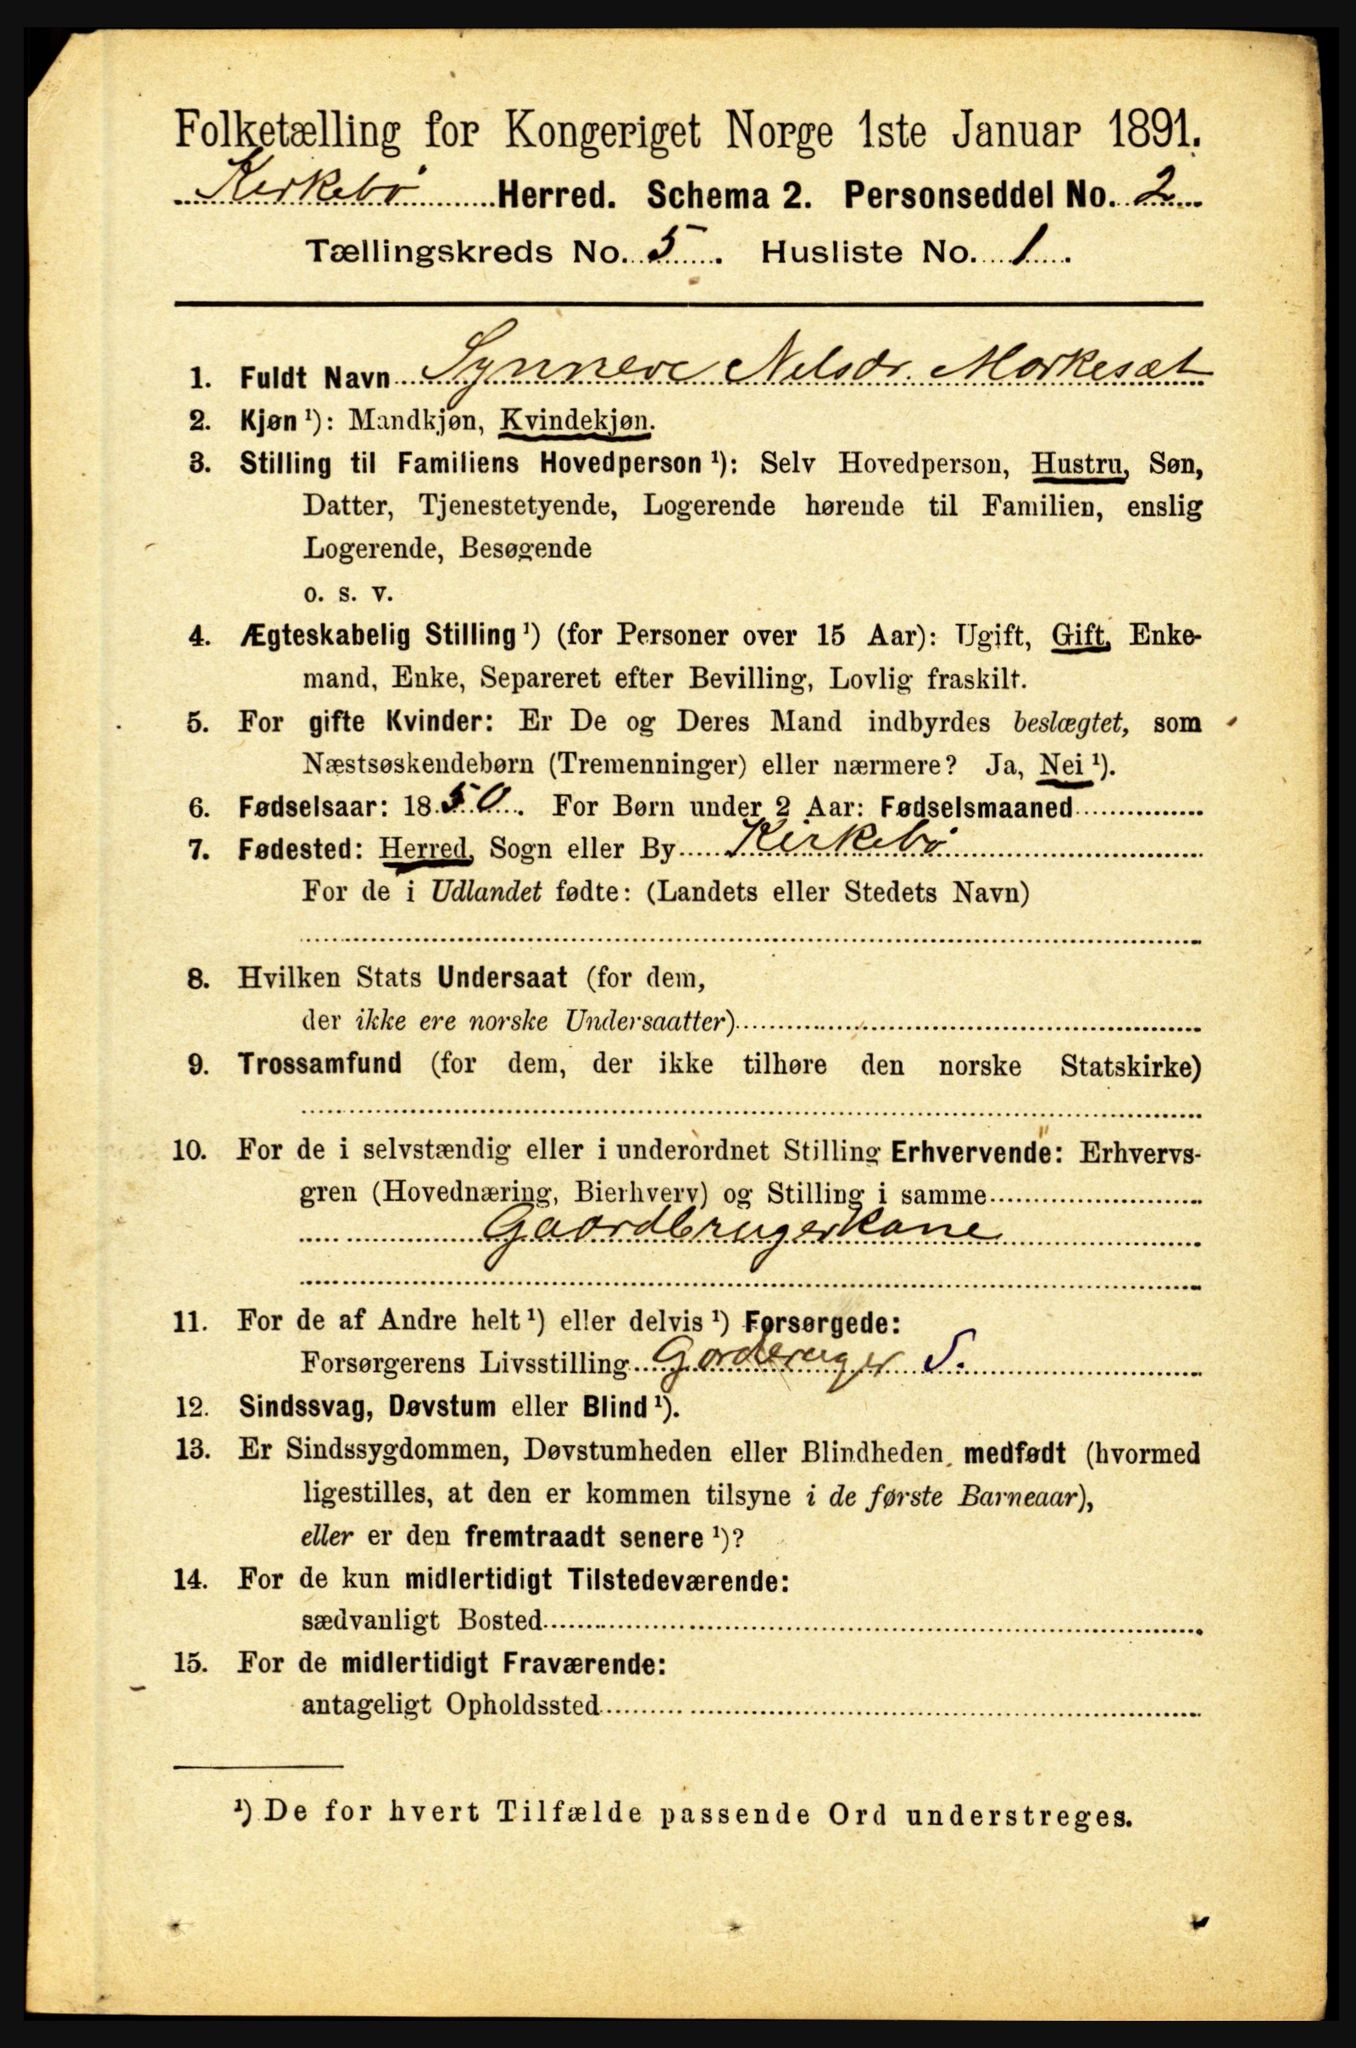 Folketælling for Kongeriget Norge 1ste Januar 1891.
Kirkebø Herred. Schema 2. Personseddel No. 2
Tællingskreds No. 5. Husliste No. 1.
1. Fuldt Navn Synneve Nilsdr. Morkesæt
2. Kjøn ¹): Mandkjøn, Kvindekjøn.
3. Stilling til Familiens Hovedperson ¹): Selv Hovedperson, Hustru, Søn,
Datter, Tjenestetyende, Logerende hørende til Familien, enslig
Logerende, Besøgende
o. s. v.
4. Ægteskabelig Stilling ¹) (for Personer over 15 Aar): Ugift, Gift, Enke-
mand, Enke, Separeret efter Bevilling, Lovlig fraskilt.
5. For gifte Kvinder: Er De og Deres Mand indbyrdes beslægtet, som
Næstsøskendebørn (Tremenninger) eller nærmere? Ja, Nei ¹).
6. Fødselsaar: 1850. For Børn under 2 Aar: Fødselsmaaned
7. Fødested: Herred, Sogn eller By Kirkebø
For de i Udlandet fødte: (Landets eller Stedets Navn)
8. Hvilken Stats Undersaat (for dem,
der ikke ere norske Undersaatter)
9. Trossamfund (for dem, der ikke tilhøre den norske Statskirke)
10. For de i selvstændig eller i underordnet Stilling Erhvervende: Erhvervs-
gren (Hovednæring, Bierhverv) og Stilling i samme
Gaardbrugerkone
11. For de af Andre helt ¹) eller delvis ¹) Forsørgede:
Forsørgerens Livsstilling Gardbruger S.
12. Sindssvag, Døvstum eller Blind ¹).
13. Er Sindssygdommen, Døvstumheden eller Blindheden, medfødt (hvormed
ligestilles, at den er kommen tilsyne i de første Barneaar),
eller er den fremtraadt senere ¹)?
14. For de kun midlertidigt Tilstedeværende:
sædvanligt Bosted
15. For de midlertidigt Fraværende:
antageligt Opholdssted
¹) De for hvert Tilfælde passende Ord understreges.